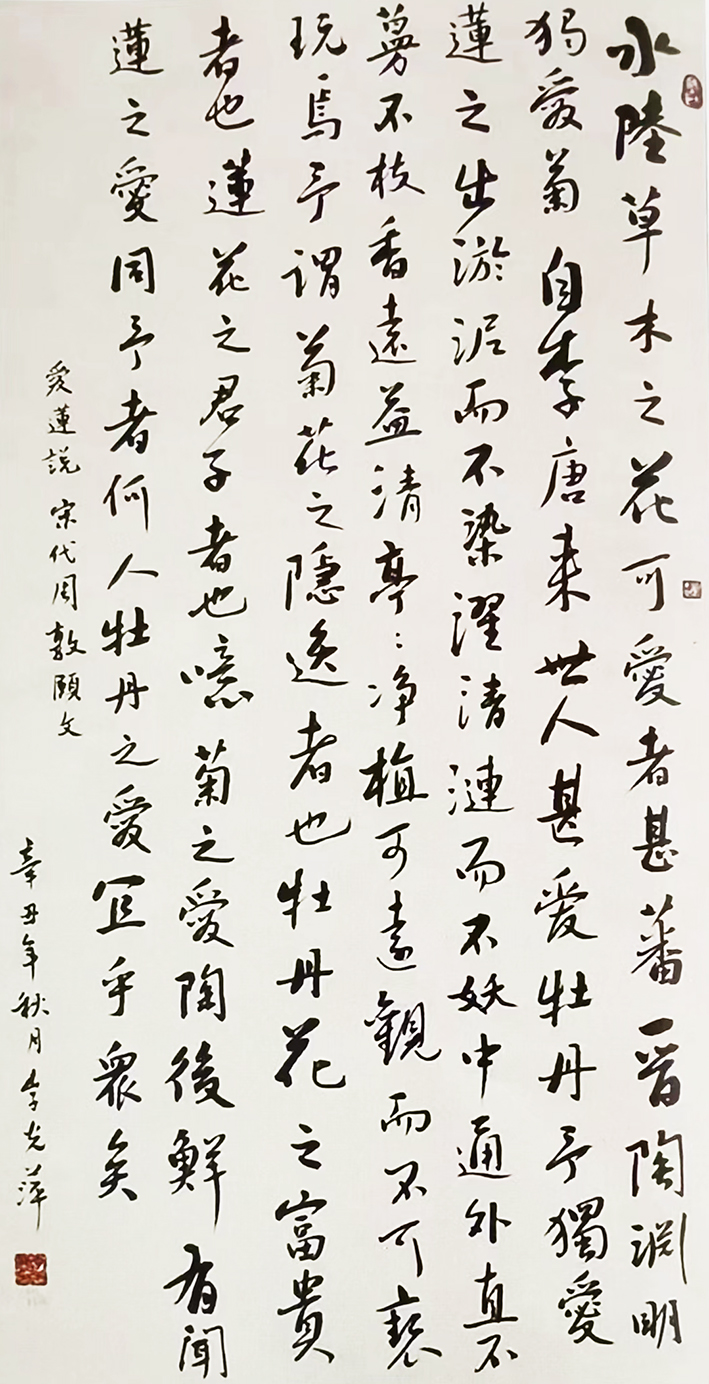 水陸草木之花可愛者甚蕃晉陶淵明
獨愛菊自李唐来世人甚愛牡丹予獨愛
蓮之出淤泥而不染濯清漣而不妖中通外直不
蔓不枝香遠益清亭〻净植可遠觀而不可褻
玩焉予謂菊花之隱逸者也牡丹花之富貴
者也蓮花之君子者也噫菊之愛陶後鮮有聞
蓮之愛同予者何人牡丹之愛宜乎衆矣
愛蓮説 宋代周敦頤文
辛丑年秋月李光萍